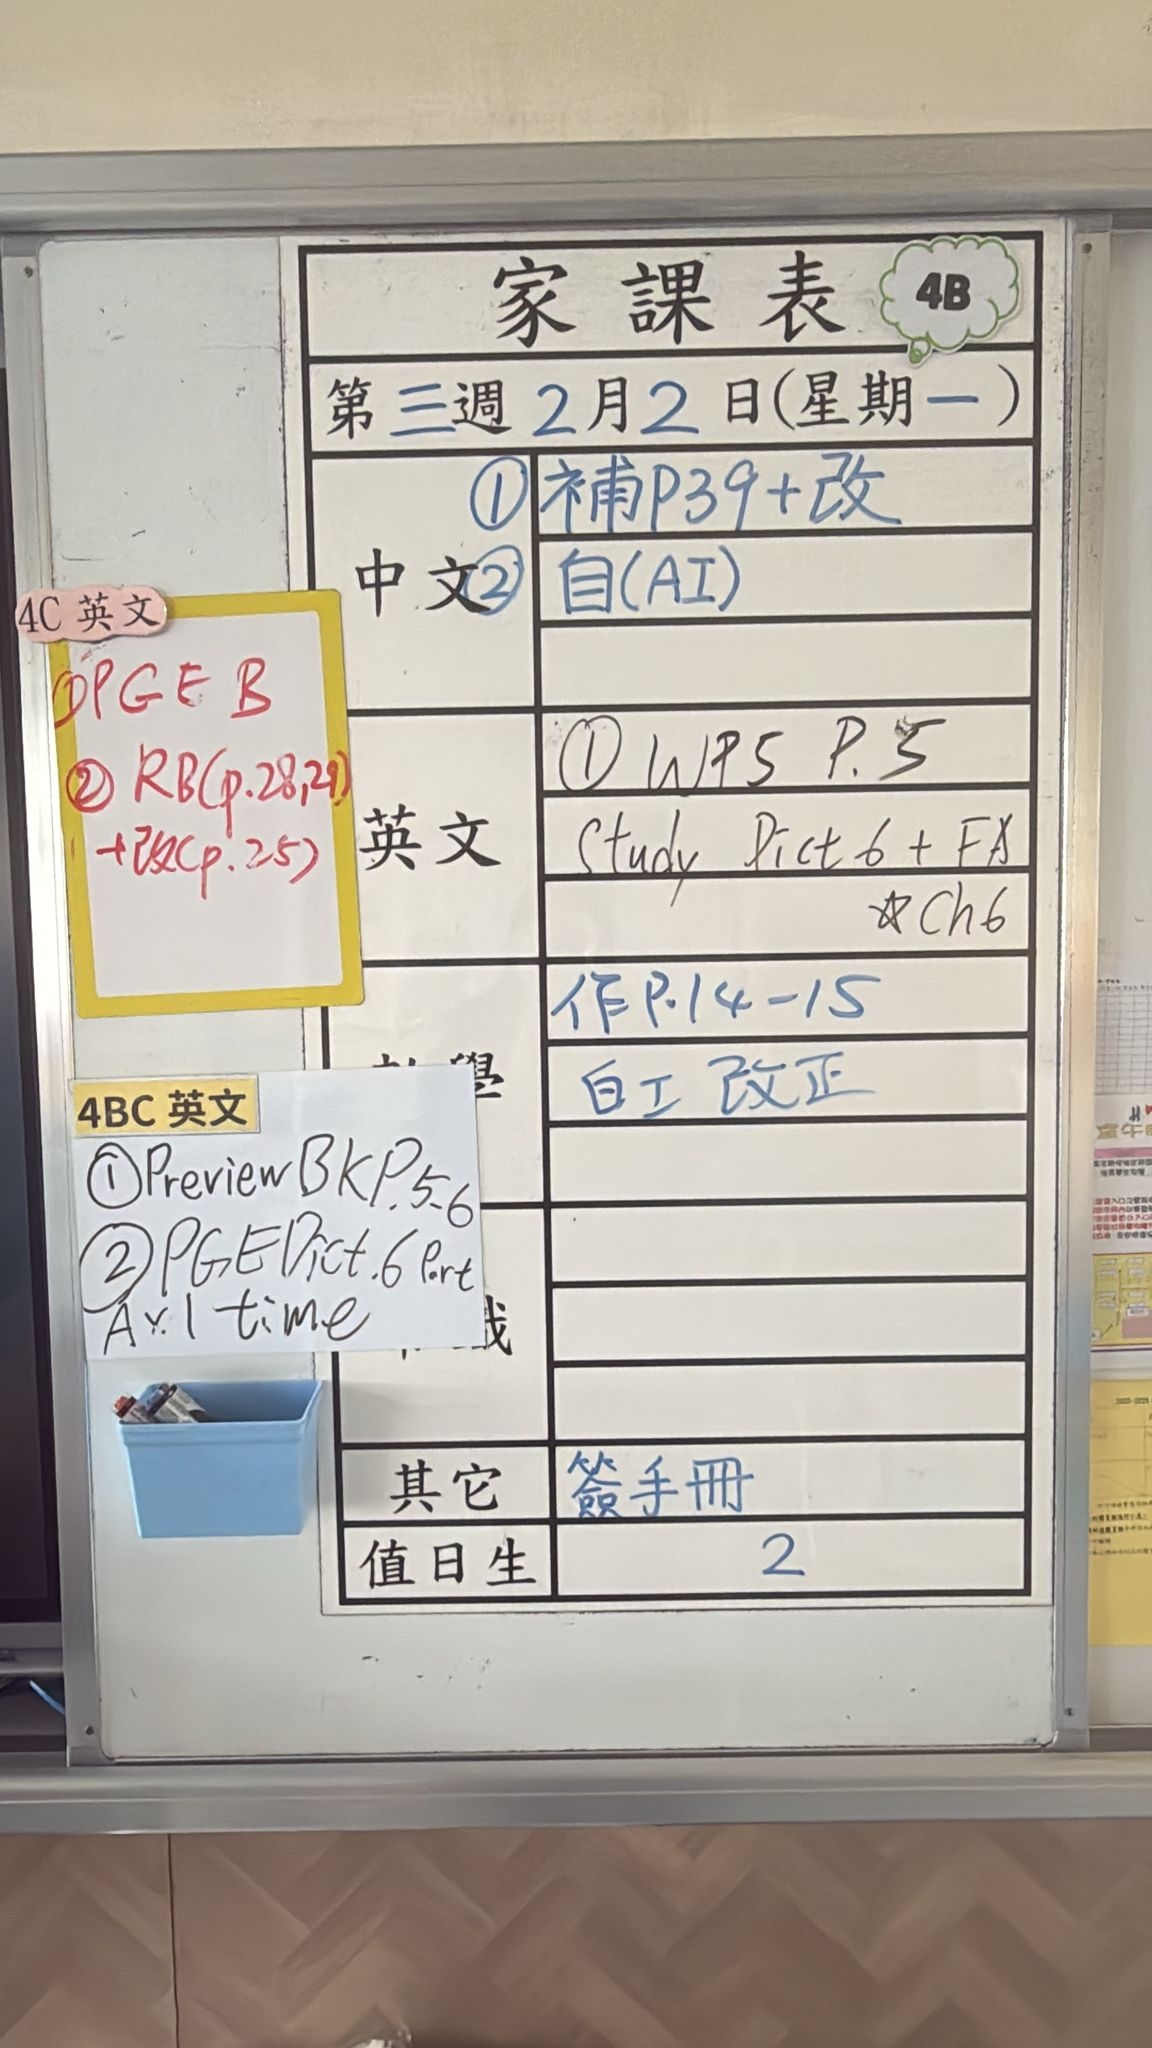 家課表 4B
第三週2月2日(星期一)
中文
① 補P39+改
② 自(AI)
4C 英文
① PGE B
② RB(p.28,29)
+改(p.25)
英文
① WPS P.5
Study Dict 6 + FA
☆Ch6
學
作P.14-15
白工 改正
4BC 英文
① Preview BK P.5-6
② PGE Dict.6 Part
A x1 time
其它
簽手冊
值日生
2